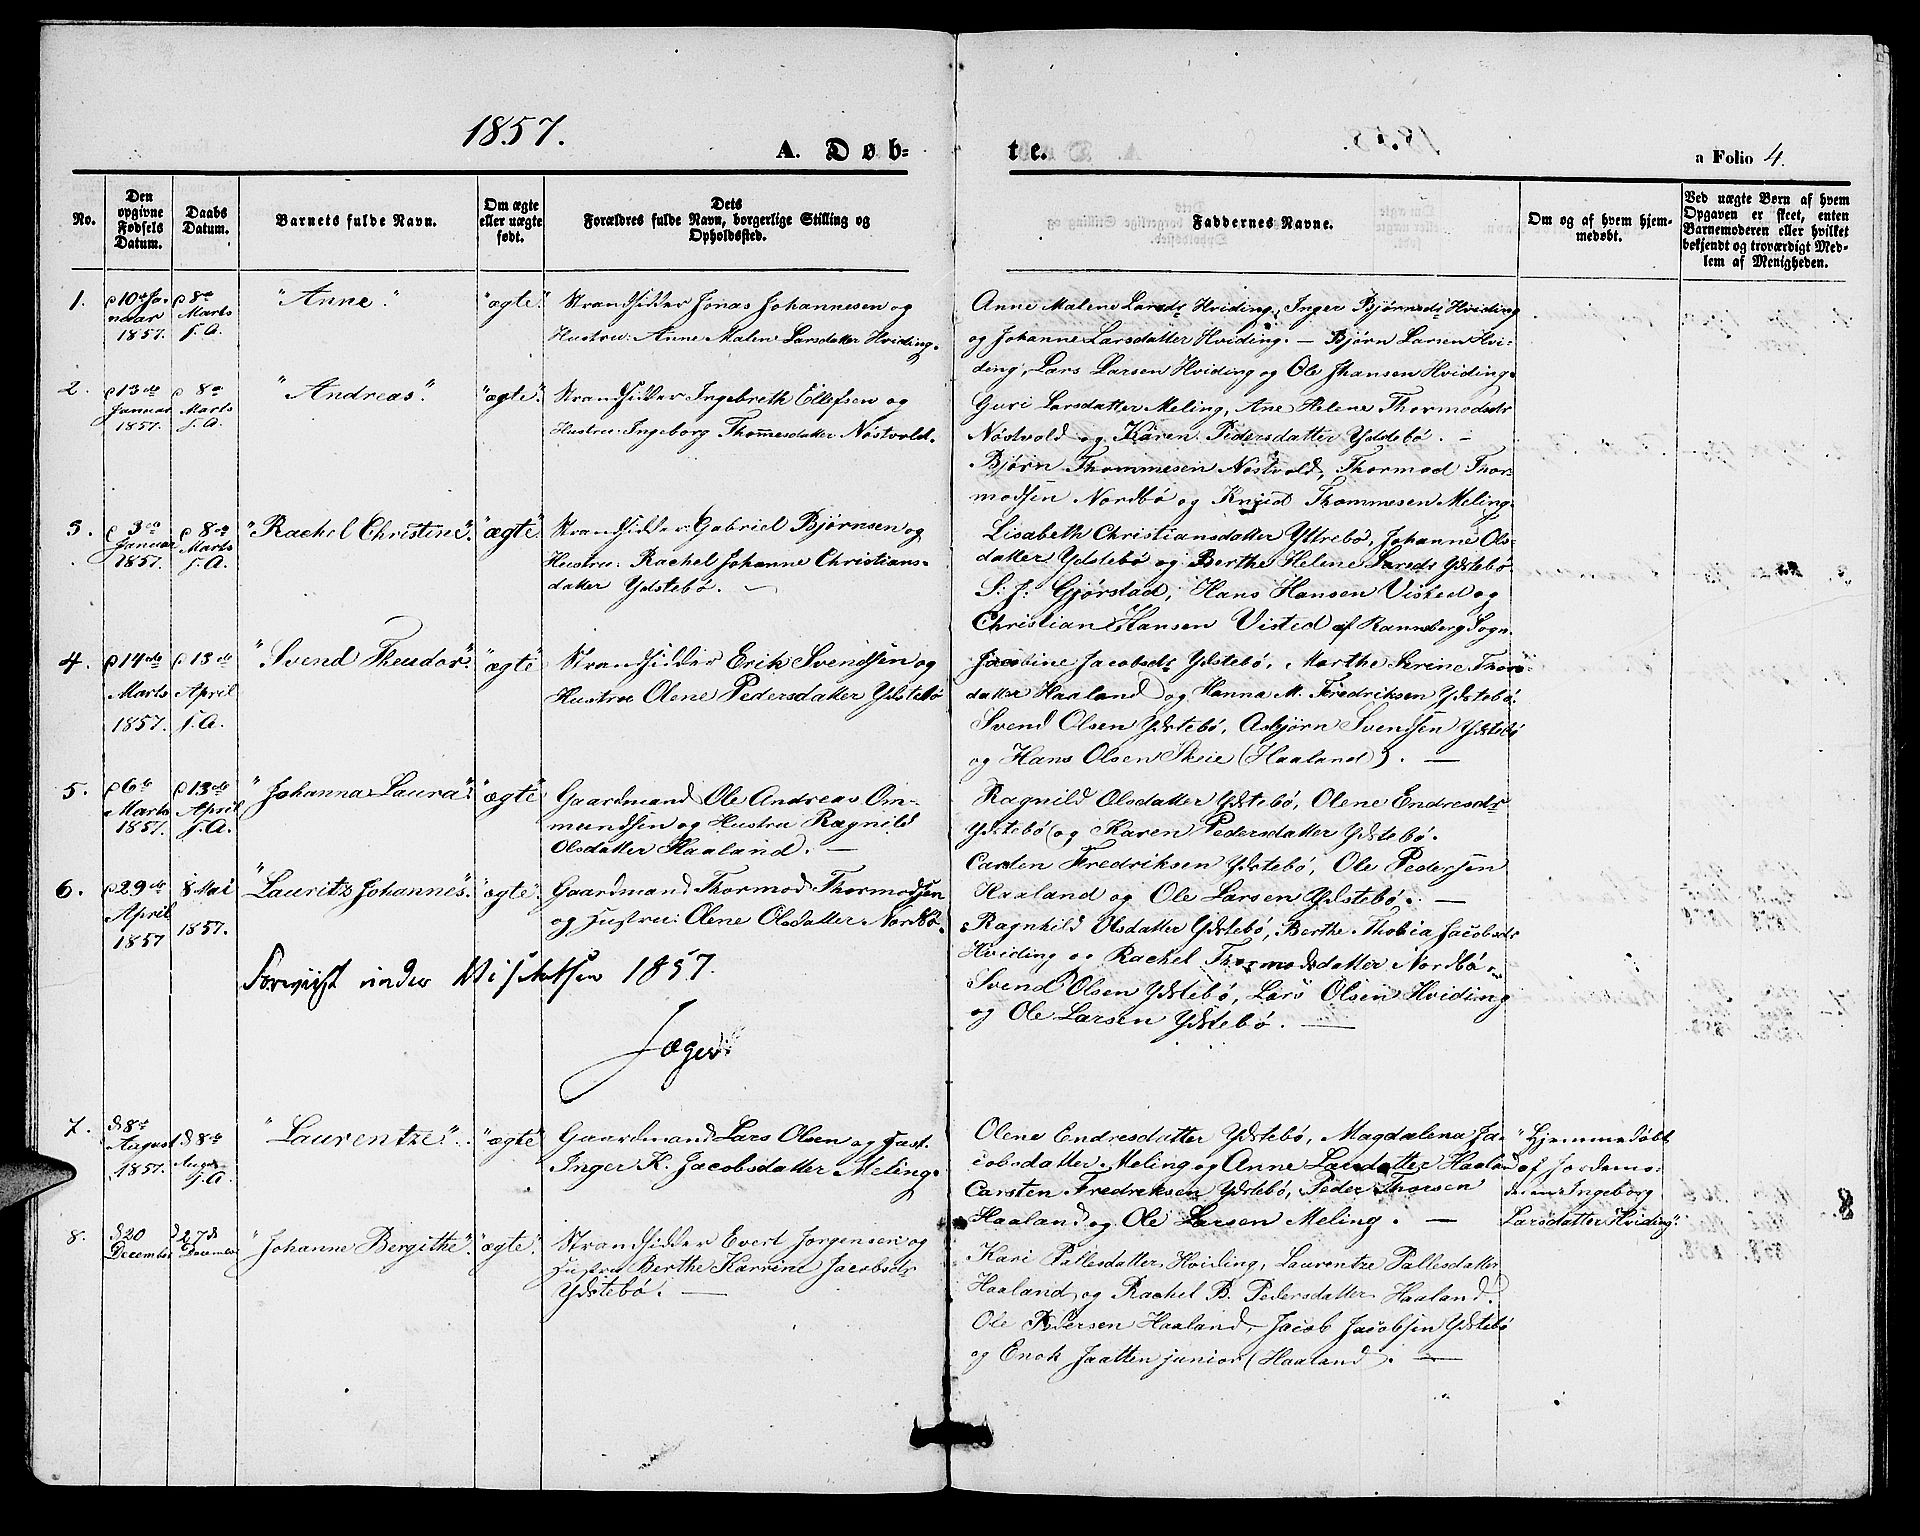 1857.
A. Døb-
te.
a Folio 4.
No.
Den opgivne Fødsels Datum.
Daabs Datum.
Barnets fulde Navn.
Om ægte eller uægte født.
Dets Forældres fulde Navn, borgerlige Stilling og Opholdssted.
Faddernes Navne.
Om og af hvem hjemmedøbt.
Ved uægte Børn af hvem Opgaven er skeet, enten Barnemoderen eller hvilket bekjendt og troværdigt Medlem af Menigheden.
1.
10de Januar 1857.
8de Marts s. A.
"Anne."
"ægte".
Strandsidder Jonas Johannesen og
Hustru: Anne Malen Larsdatter Hviding.
Anne Malene Larsdr Hviding, Inger Bjørnsdr Hviding
og Johanne Larsdatter Hviding. – Bjørn Larsen Hvi-
ding, Lars Larsen Hviding og Ole Jhansen Hviding.
2.
13de Januar 1857.
8de Marts s. A.
"Andreas".
"ægte".
Strandsidder Ingebreth Ellefsen og
Hustru: Ingeborg Thommesdatter Nöstvold.
Guri Larsdatter Meling, Ane Helene Thormodsdr
Nöstvold og Karen Pedersdatter Ydstebö. –
Bjørn Thommesen Nöstvold, Thormod Thor-
modsen Nordbö og Knud Thommesen Meling.
3.
3de Januar 1857.
8de Marts s. A.
"Rachel Christine".
"ægte"
Strandsidder Gabriel Bjørnsen og
Hustru: Rachel Johanne Christians-
datter Ydstebö. –
Lisabeth Christiansdatter Yttrebö, Johanne Ols-
datter Ydstebö og Berthe Helene Larsdr Ydstebö
S. J. Gjørstad, Hans Hansen Visted og
Christian Hansen Visted af Ranneberg Sogn.
4.
14de Marts 1857.
13de April s. A.
"Svend Theudor".
"ægte"
Strandsidder Erik Svendsen og
Hustru Olene Pedersdatter Ydstebö
Jacobine Jacobsdr Ydstebö, Marthe Serine Thors-
datter Haaland og Hanna M. Fredriksen Ydstebö.
Svend Olsen Ydstebö, Asbjørn Svendsen Ydstebö
og Hans Olsen Skeie (Haaland). –
5.
6te Marts 1857.
13de April s. A.
"Johanna Laura".
"ægte"
Gaardmand Ole Andreas Om-
mundsen og Hustru Ragnild
Olsdatter Haaland. –
Ragnild Olsdatter Ydstebö, Olene Endresdr
Ydstebö og Karen Pedersdatter Ydstebö.
Carsten Fredriksen Ydstebö, Ole Pedersen
Haaland og Ole Larsen Ydstebö. –
6.
29de April 1857
8 Mai 1857.
"Lauritz Johannes".
"ægte".
Gaardmand Thormod Thormodsen
og Hustru: Olene Olsdatter Nordbö.
Ragnhild Olsdatter Ydstebö, Berthe Thobia Jacobsdr
Hviding og Rachel Thormodsdatter Nordbö –
Svend Olsen Ydstebö, Lars Olsen Hviding
og Ole Larsen Ydstebö. –
Foreviist under Visitatsen 1857.
Jæger
7.
d 8de August 1857.
d 8de Aug. s. A
"Laurentze".
"ægte"
Gaardmand Lars Olsen og Hust.
Inger K. Jacobsdatter Meling.
Olene Endresdatter Ydstebö, Magdalena Ja-
cobsdatter Meling og Anne Larsdatter Haaland
Carsten Fredriksen Ydstebö, Peder Thorsen
Haaland og Ole Larsen Meling. –
"Hjemmedöbt
af Jordemo-
deren Ingeborg
Larsdatter Hviding".
8.
d 20 December
d 27de December
"Johanne Bergithe".
"ægte".
Strandsidder Evert Jørgensen og
Hustru Berthe Karrine Jacobsdr
Ydstebö. –
Kari Pallesdatter Hviding, Laurentze Pallesdatter
Haaland og Rachel B. Pedersdatter Haaland.
Ole Pedersen Haaland, Jacob Jacobsen Ydstebö
og Enok Jaatten junior (Haaland. –